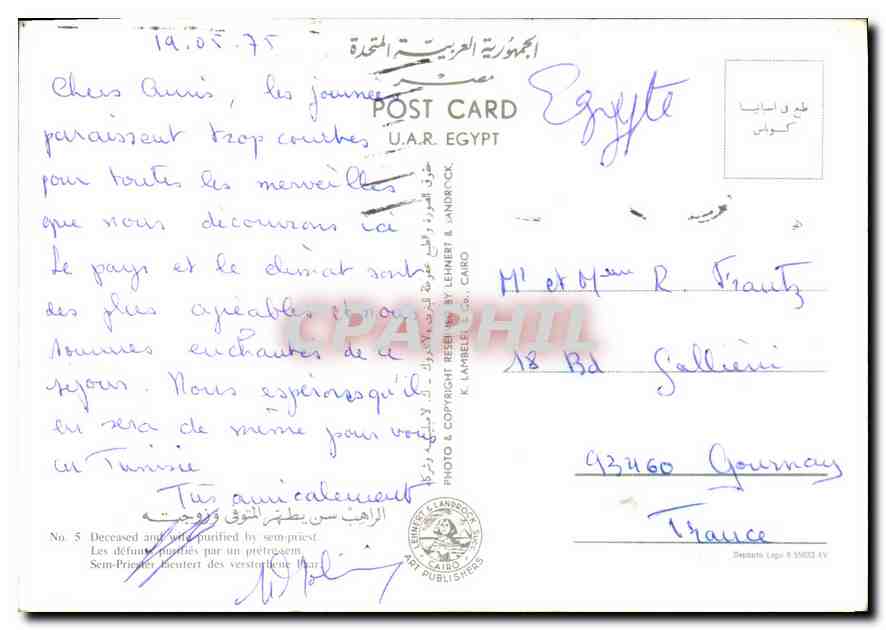 19.05.75
Chers Amis, les journées
paraissent trop courtes
pour toutes les merveilles
que nous découvrons ici
Le pays et le climat sont
des plus agréables et nous
sommes enchantés de ce
séjour. Nous espérons qu'il
en sera de même pour vous
en Tunisie
Très amicalement
الجمهورية العربية المتحدة
مصر
POST CARD
U.A.R. EGYPT
Egypte
طبع في اسبانيا
PHOTO & COPYRIGHT RESERVED BY LEHNERT & LANDROCK,
K. LAMBELET & Co., CAIRO
CPAPHIL
Mr et Mme R. Frantz
18 Bd Galliéni
93460 Gournay
France
الراهب سن يطهر المتوفى وزوجته
No. 5 Deceased and wife purified by sem-priest
Les défunts purifiés par un prêtre sem
Sem-Priester laeutert des verstorbene Paar
LEHNERT & LANDROCK SUCC.
CAIRO
ART PUBLISHERS